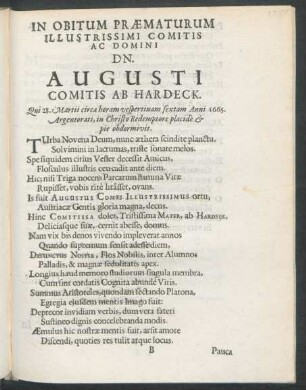 IN OBITUM PRÆMATURUM
ILLUSTRISSIMI COMITIS
AC DOMINI
DN.
AUGUSTI
COMITIS AB HARDECK.
Qui 28. Martii circa horam vespertinam sextam Anni 1665.
Argentorati, in Christo Redemptore placidè &
pie obdormivit.
TUrba Novena Deum, nunc æthera scindite planctu,
Solvimini in lacrumas, triste sonate melos.
Spe siquidem citius Vester decessit Amicus,
Flosculus illustris ceu cadit ante diem.
Hic nisi Triga nocens Parcarum stamina Vitæ
Rupisset, vobis ritè litâsset, ovans.
Is fuit AUGUSTUS COMES ILLUSTRISSIMUS ortu,
Austriacæ Gentis gloria magna, decus.
Hinc COMITISSA doles, Tristissima MATER, ab HARDECK
Deliciasque tuæ, cernis abesse, domus.
Nam vix bis denos vivendo impleverat annos
Quando supremum sensit adesse diem,
Flos Nobilis, inter Alumnos
Palladis, & magnæ sedulitatis apex.
Longius haud memoro studiorum singula membra,
Cum sint cordatis Cognita abundè Viris.
Summus Aristoteles, quondam sectando Platona,
Egregia ejusdem mentis Imago fuit:
Deprecor invidiam verbis, dum vera fateri
Sustineo dignis concelebranda modis.
Æmulus hic nostræ mentis fuit, arsit amore
Discendi, quoties res tulit atque locus.
B Pauca